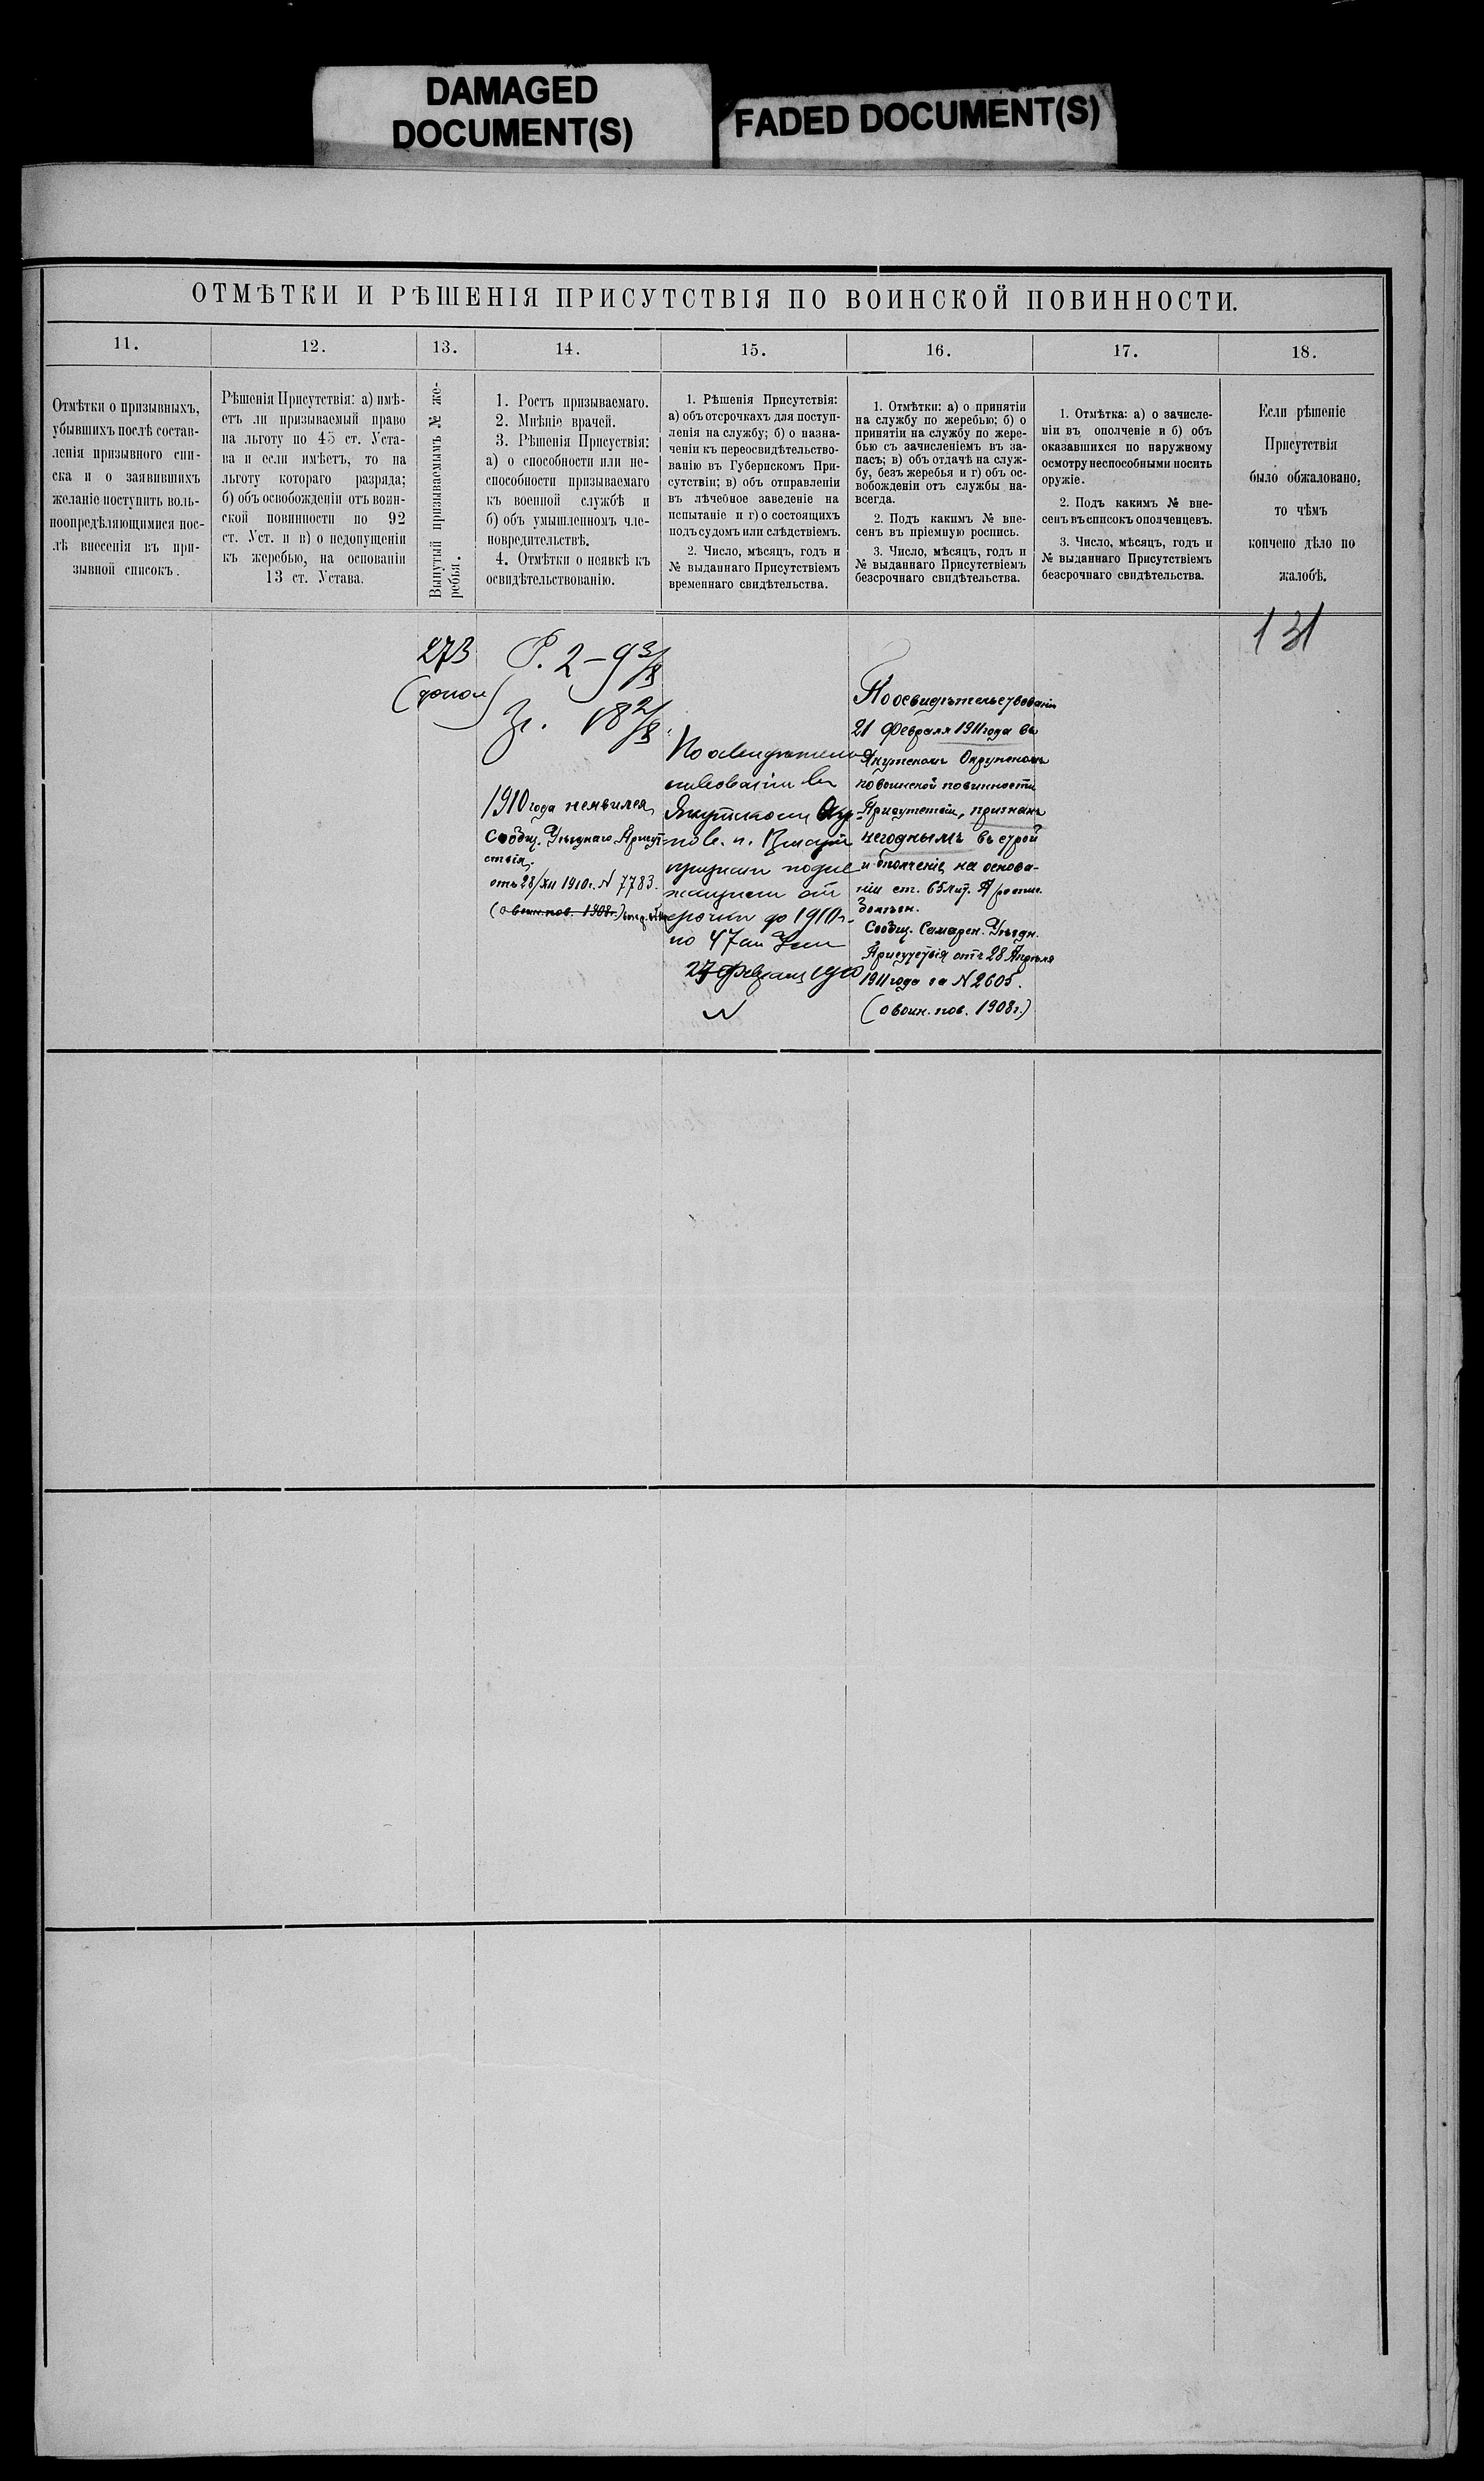 DAMAGED
DOCUMENT(S)
FADED DOCUMENT(S)
ОТМѢТКИ И РѢШЕНІЯ ПРИСУТСТВІЯ ПО ВОИНСКОЙ ПОВИННОСТИ.
11.
12.
13.
14.
15.
16.
17.
18.
Отмѣтки о призывныхъ,
убывшихъ послѣ состав-
ленія призывного спи-
ска и о заявившихъ
желаніе поступить воль-
ноопредѣляющимися пос-
лѣ внесенія въ при-
зывной списокъ.
Рѣшенія Присутствія: а) имѣ-
етъ ли призываемый право
на льготу по 45 ст. Уста-
ва и если имѣетъ, то на
льготу котораго разряда;
б) объ освобожденіи отъ воин-
ской повинности по 92
ст. Уст. и в) о недопущеніи
къ жеребью, на основаніи
13 ст. Устава.
Вынутый призываемымъ № же-
ребья.
1. Ростъ призываемаго.
2. Мнѣніе врачей.
3. Рѣшенія Присуствія:
а) о способности или не-
способности призываемаго
къ военной службѣ и
б) объ умышленномъ чле-
новредительствѣ.
4. Отмѣтки о неявкѣ къ
освидѣтельствованію.
1. Рѣшенія Присутствія:
а) объ отсрочкахъ для поступ-
ленія на службу; б) о назна-
ченіи къ переосвидѣтельство-
ванію въ Губернскомъ При-
сутствіи; в) объ отправленіи
въ лѣчебное заведеніе на
испытаніе и г) о состоящихъ
подъ судомъ или слѣдствіемъ.
2. Число, мѣсяцъ, годъ и
№ выданнаго Присутствіемъ
временнаго свидѣтельства.
1. Отмѣтки: а) о принятіи
на службу по жеребью; б) о
принятіи на службу по жере-
бью съ зачисленіемъ въ за-
пасъ; в) объ отдачѣ на служ-
бу, безъ жеребья и г) объ ос-
вобожденіи отъ службы на-
всегда.
2. Подъ какимъ № вне-
сенъ въ пріемную роспись.
3. Число, мѣсяцъ, годъ и
№ выданнаго Присутствіемъ
безсрочнаго свидѣтельства.
1. Отмѣтка: а) о зачисле-
ніи въ ополченіе и б) объ
оказавшихся по наружному
осмотру неспособными носить
оружіе.
2. Подъ какимъ № вне-
сенъ въ списокъ ополченцевъ.
3. Число, мѣсяцъ, годъ и
№ выданнаго Присутствіемъ
безсрочнаго свидѣтельства.
Если рѣшеніе
Присутствія
было обжаловано,
то чѣмъ
кончено дѣло по
жалобѣ.
273
(допол)
Р. 2 – 9 3/8
Зг. 18 2/8
1910 года неявился
Сообщ. Уѣзднаго Присут-
ствія,
отъ 28/XII 1910г. N 7783.
(о воин. пов. 1908г.)
По освидѣтель-
ствованіи въ
Якутскомъ Окр.
по в. п. Присут.
признанъ подле-
жащимъ от-
срочки до 1910г.
по 47 ст
27 февраля 1910
N
По освидѣтельствованіи
21 Февраля 1911 года въ
Якутскомъ Окружномъ
по воинской повинности
Присутствіи, признанъ
негоднымъ въ строй
и ополченіе, на основа-
ніи ст. 65 лит. А роспис.
болѣзн.
Сообщ. Самарск. Уѣздн.
Присутствія отъ 28 Апрѣля
1911 года за N 2605.
(о воин. пов. 1908г.)
131